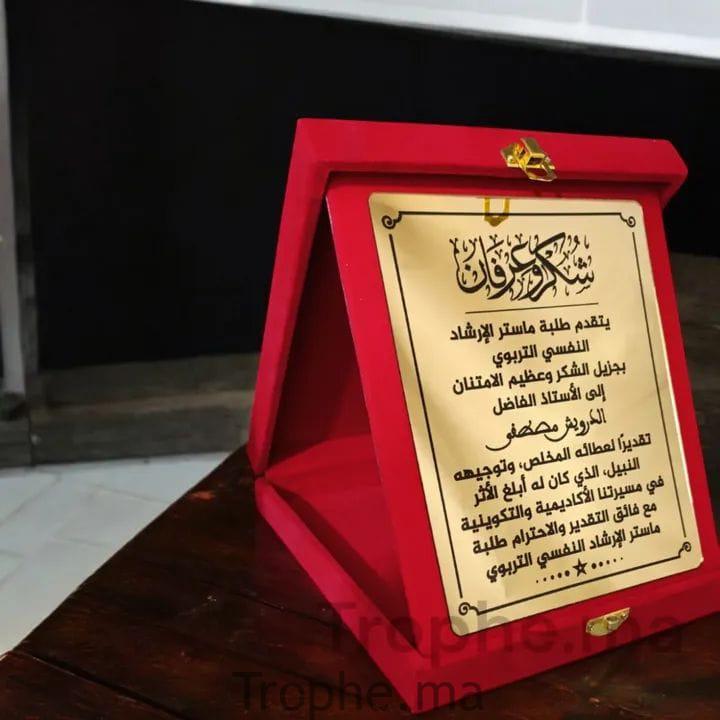 شُكر وعرفان
يتقدم طلبة ماستر الإرشاد
النفسي التربوي
بجزيل الشكر وعظيم الامتنان
إلى الأستاذ الفاضل
الدرويش مصطفى
تقديرًا لعطائه المخلص، وتوجيهه
النبيل، الذي كان له أبلغ الأثر
في مسيرتنا الأكاديمية والتكوينية
مع فائق التقدير والاحترام طلبة
ماستر الإرشاد النفسي التربوي
Trophe.ma
Trophe.ma